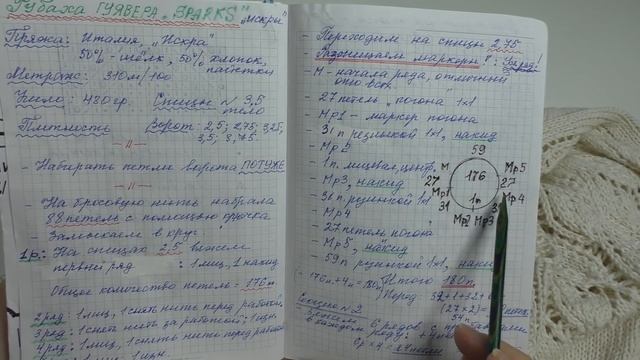 Рубаха ГУЯВЕРА „SPARKS" „искры"
Пряжа: Италия, „Искра"
50% - шёлк, 50% хлопок,
пайетки
Метраж: 310м/100
Ушло: 480гр. Спицы № 3,5
тело
Плотность Ворот: 2,5; 2,75; 3,25;
3,5; 3,75.
- Набирать петли ворота ПОТУЖЕ
- На бросовую нить набрала
88 петель с помощью крючка
- Замыкаем в круг
1р: На спицах 2,5 вяжем
первый ряд: 1 лиц, 1 накид
Общее количество петель = 176п.
2ряд: 1 лиц, 1 снять нить перед работой
3ряд: 1 снять нить за работой, 1 изн.
4ряд: 1 лиц, 1 снять нить перед работой
- Переходим на спицы 2,75
- Развешиваем маркеры:
- М - начала ряда, отличный
от всех
- 27 петель „погона" 1х1
- Мр1 - маркер погона
- 31п резинкой 1х1, накид
- Мр2
- 1п. лицевая, центр.
- Мр3, накид
- 31п. резинкой 1х1
- Мр4
- 27 петель погона
- Мр5, накид
- 59п резинкой 1х1, накид
Итого 180п.
59
М Мр5
27 176 27
Мр1 Мр4
31 1п 31
Мр2 Мр3
176п + 4п = 180п
(27х2) =
54п.